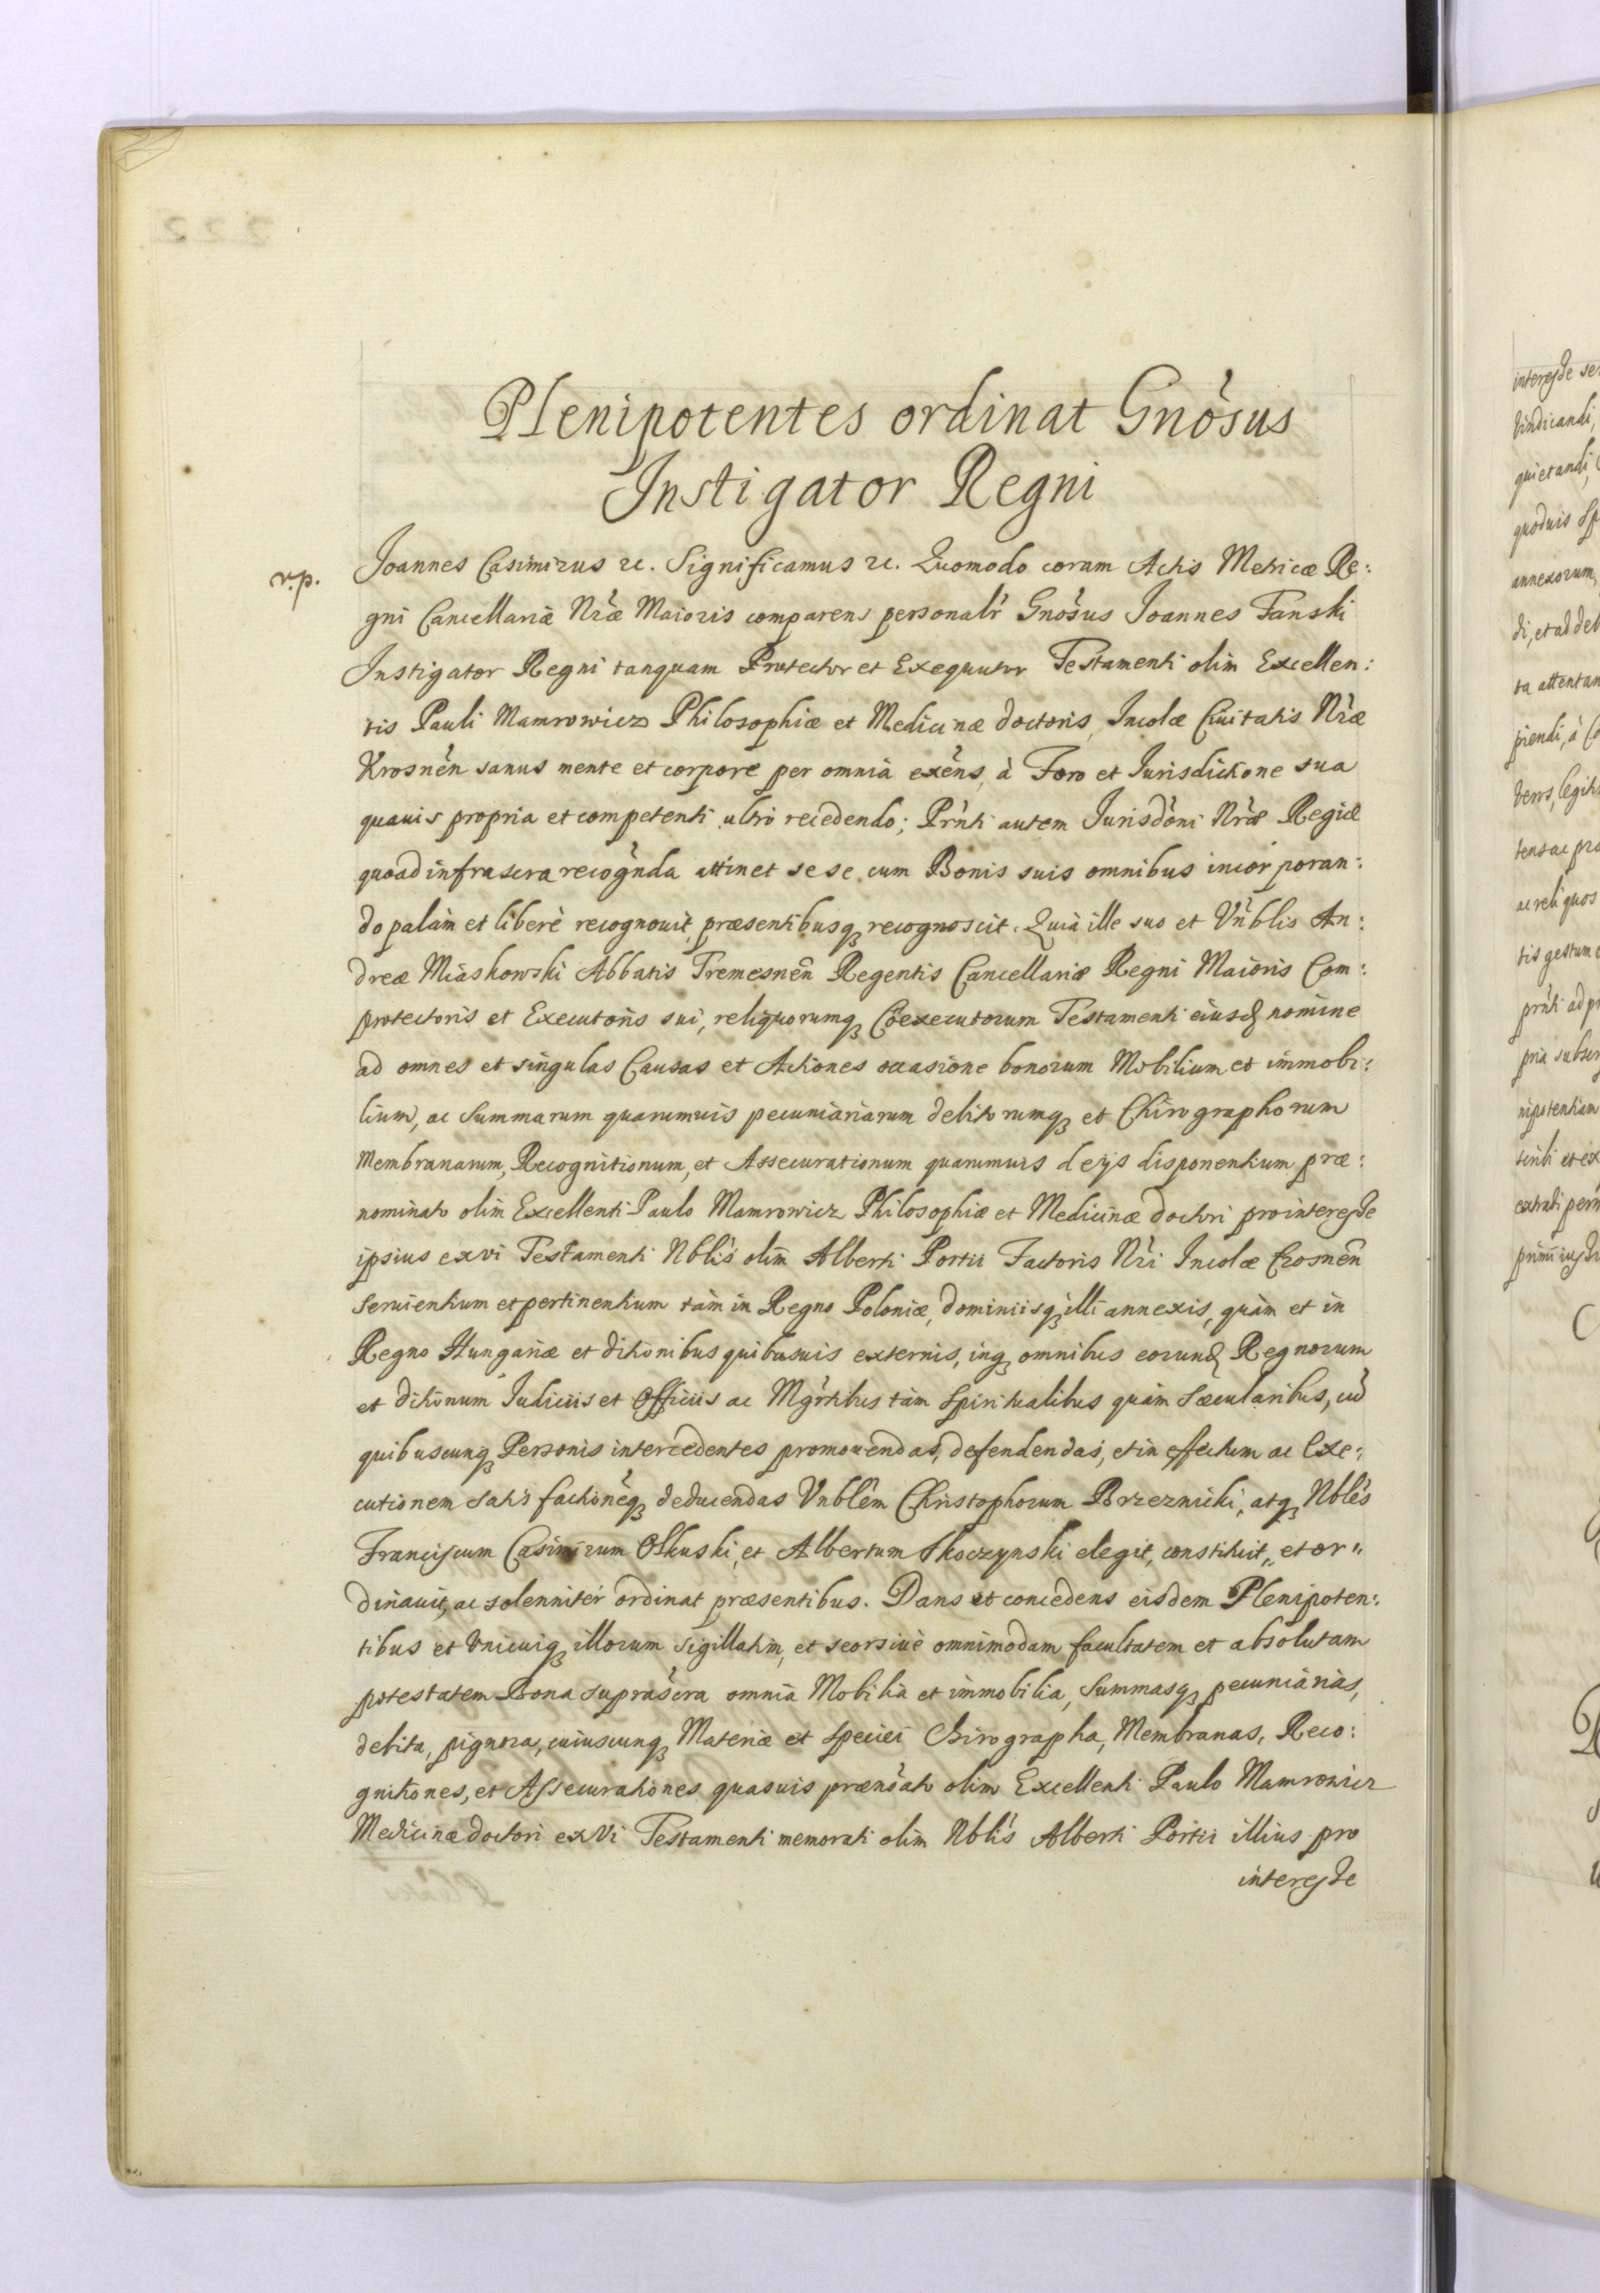 Plenipotentes ordinat Gnosus
Instigator Regni
v.p.
Joannes Casimirus etc. Significamus etc. Quomodo coram Actis Metricæ Re:
gni Cancellariæ Nræ Maioris comparens personalr Gnosus Joannes Tanski
Instigator Regni tanquam Protector et Exequutor Testamenti olim Excellen:
tis Pauli Mamrowicz Philosophiæ et Medicinæ doctoris, Incolæ Civitatis Nræ
Krosnen sanus mente et corpore per omnia exens, à Foro et Jurisdictione sua
quavis propria et competenti ultro recedendo; Prnti autem Jurisdoni Nræ Regiæ
quoad infrascra recognda attinet sese cum Bonis suis omnibus incorporan:
do palàm et liberè recognouit, præsentibusq recognoscit. Quià ille suo et Vnblis An:
dreæ Miaskowski Abbatis Tremesnen Regentis Cancellariæ Regni Maioris Com:
protectoris et Executoris sui, reliquorumq Coexecutorum Testamenti eiusd nomine
ad omnes et singulas Causas et Actiones occasione bonorum Mobilium et immobi:
lium, ac Summarum quarumuis pecuniariarum debitorumq et Chirographorum
Membranarum, Recognitionum, et Assecurationum quarumuis de ijs disponentium præ:
nominato olim Excellenti Paulo Mamrowicz Philosophiæ et Medicinæ doctori pro interesse
ipsius ex vi Testamenti Nblis olim Alberti Portii Factoris Nri Incolæ Crosnen
seruientium et pertinentium tàm in Regno Poloniæ, dominiisq illi annexis, quàm et in
Regno Hungariæ et ditionibus quibusuis externis, inq omnibus eorund Regnorum
et ditionum Judiciis et Officiis ac Mgrtibus tàm Spiritualibus quàm Sæcularibus, cu
quibuscunq Personis intercedentes promouendas, defendendas, et in effectum ac Exe:
cutionem satisfactioneq deducendas Vnblem Christophorum Brzeznicki, atq Nbles
Franciscum Casimirum Olkuski, et Albertum Skoczynski elegit, constituit, et or"
dinauit, ac solenniter ordinat præsentibus. Dans et concedens eisdem Plenipoten:
tibus et Vnicuiq illorum sigillatim, et seorsiue omnimodam facultatem et absolutam
potestatem Bona suprascra omnia Mobilia et immobilia, Summasq pecuniarias,
debita, pignora, cuiuscunq Materiæ et speciei Chirographa, Membranas, Reco:
gnitiones, et Assecurationes quasuis prænoato olim Excellenti Paulo Mamrowicz
Medicinæ doctori ex Vi Testamenti memorati olim Nblis Alberti Portii illius pro
interesse